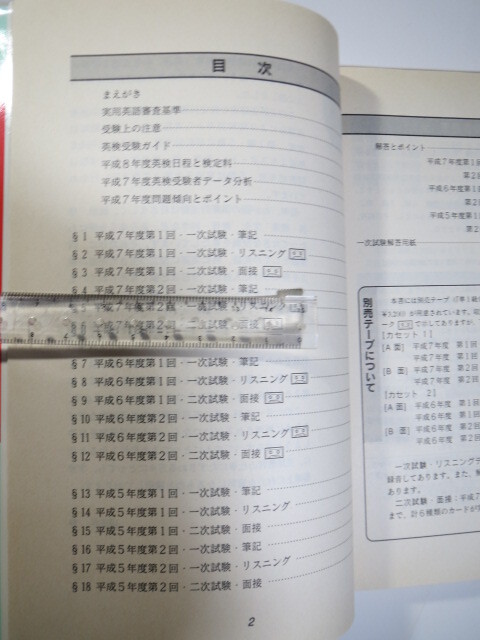 目 次
まえがき
実用英語審査基準
受験上の注意
英検受験ガイド
平成8年度英検日程と検定料
平成7年度英検受験者データ分析
平成7年度問題傾向とポイント
§1 平成7年度第1回・一次試験・筆記
§2 平成7年度第1回・一次試験・リスニング
§3 平成7年度第1回・二次試験・面接
§4 平成7年度第2回・一次試験・筆記
§5 平成7年度第2回・一次試験・リスニング
§6 平成7年度第2回・二次試験・面接
§7 平成6年度第1回・一次試験・筆記
§8 平成6年度第1回・一次試験・リスニング
§9 平成6年度第1回・二次試験・面接
§10 平成6年度第2回・一次試験・筆記
§11 平成6年度第2回・一次試験・リスニング
§12 平成6年度第2回・二次試験・面接
§13 平成5年度第1回・一次試験・筆記
§14 平成5年度第1回・一次試験・リスニング
§15 平成5年度第1回・二次試験・面接
§16 平成5年度第2回・一次試験・筆記
§17 平成5年度第2回・一次試験・リスニング
§18 平成5年度第2回・二次試験・面接
2
解答とポイント
平成7年度第1回
第2回
平成6年度第1回
第2回
平成5年度第1回
第2
一次試験解答用紙
別売テープについて
本書には別売テープ
が用意されています。
で示してありますが
[カセット 1]
[A面] 平成7年度 第1回
平成7年度 第1回
[B面] 平成7年度 第2回
平成7年度 第2回
[カセット 2]
[A面] 平成6年度 第1回
平成6年度 第1回
[B面] 平成6年度 第2回
平成6年度 第2回
一次試験・リスニングテ
録音してあります。また、
あります。
二次試験・面接：平成7
まで、計6種類のカードが